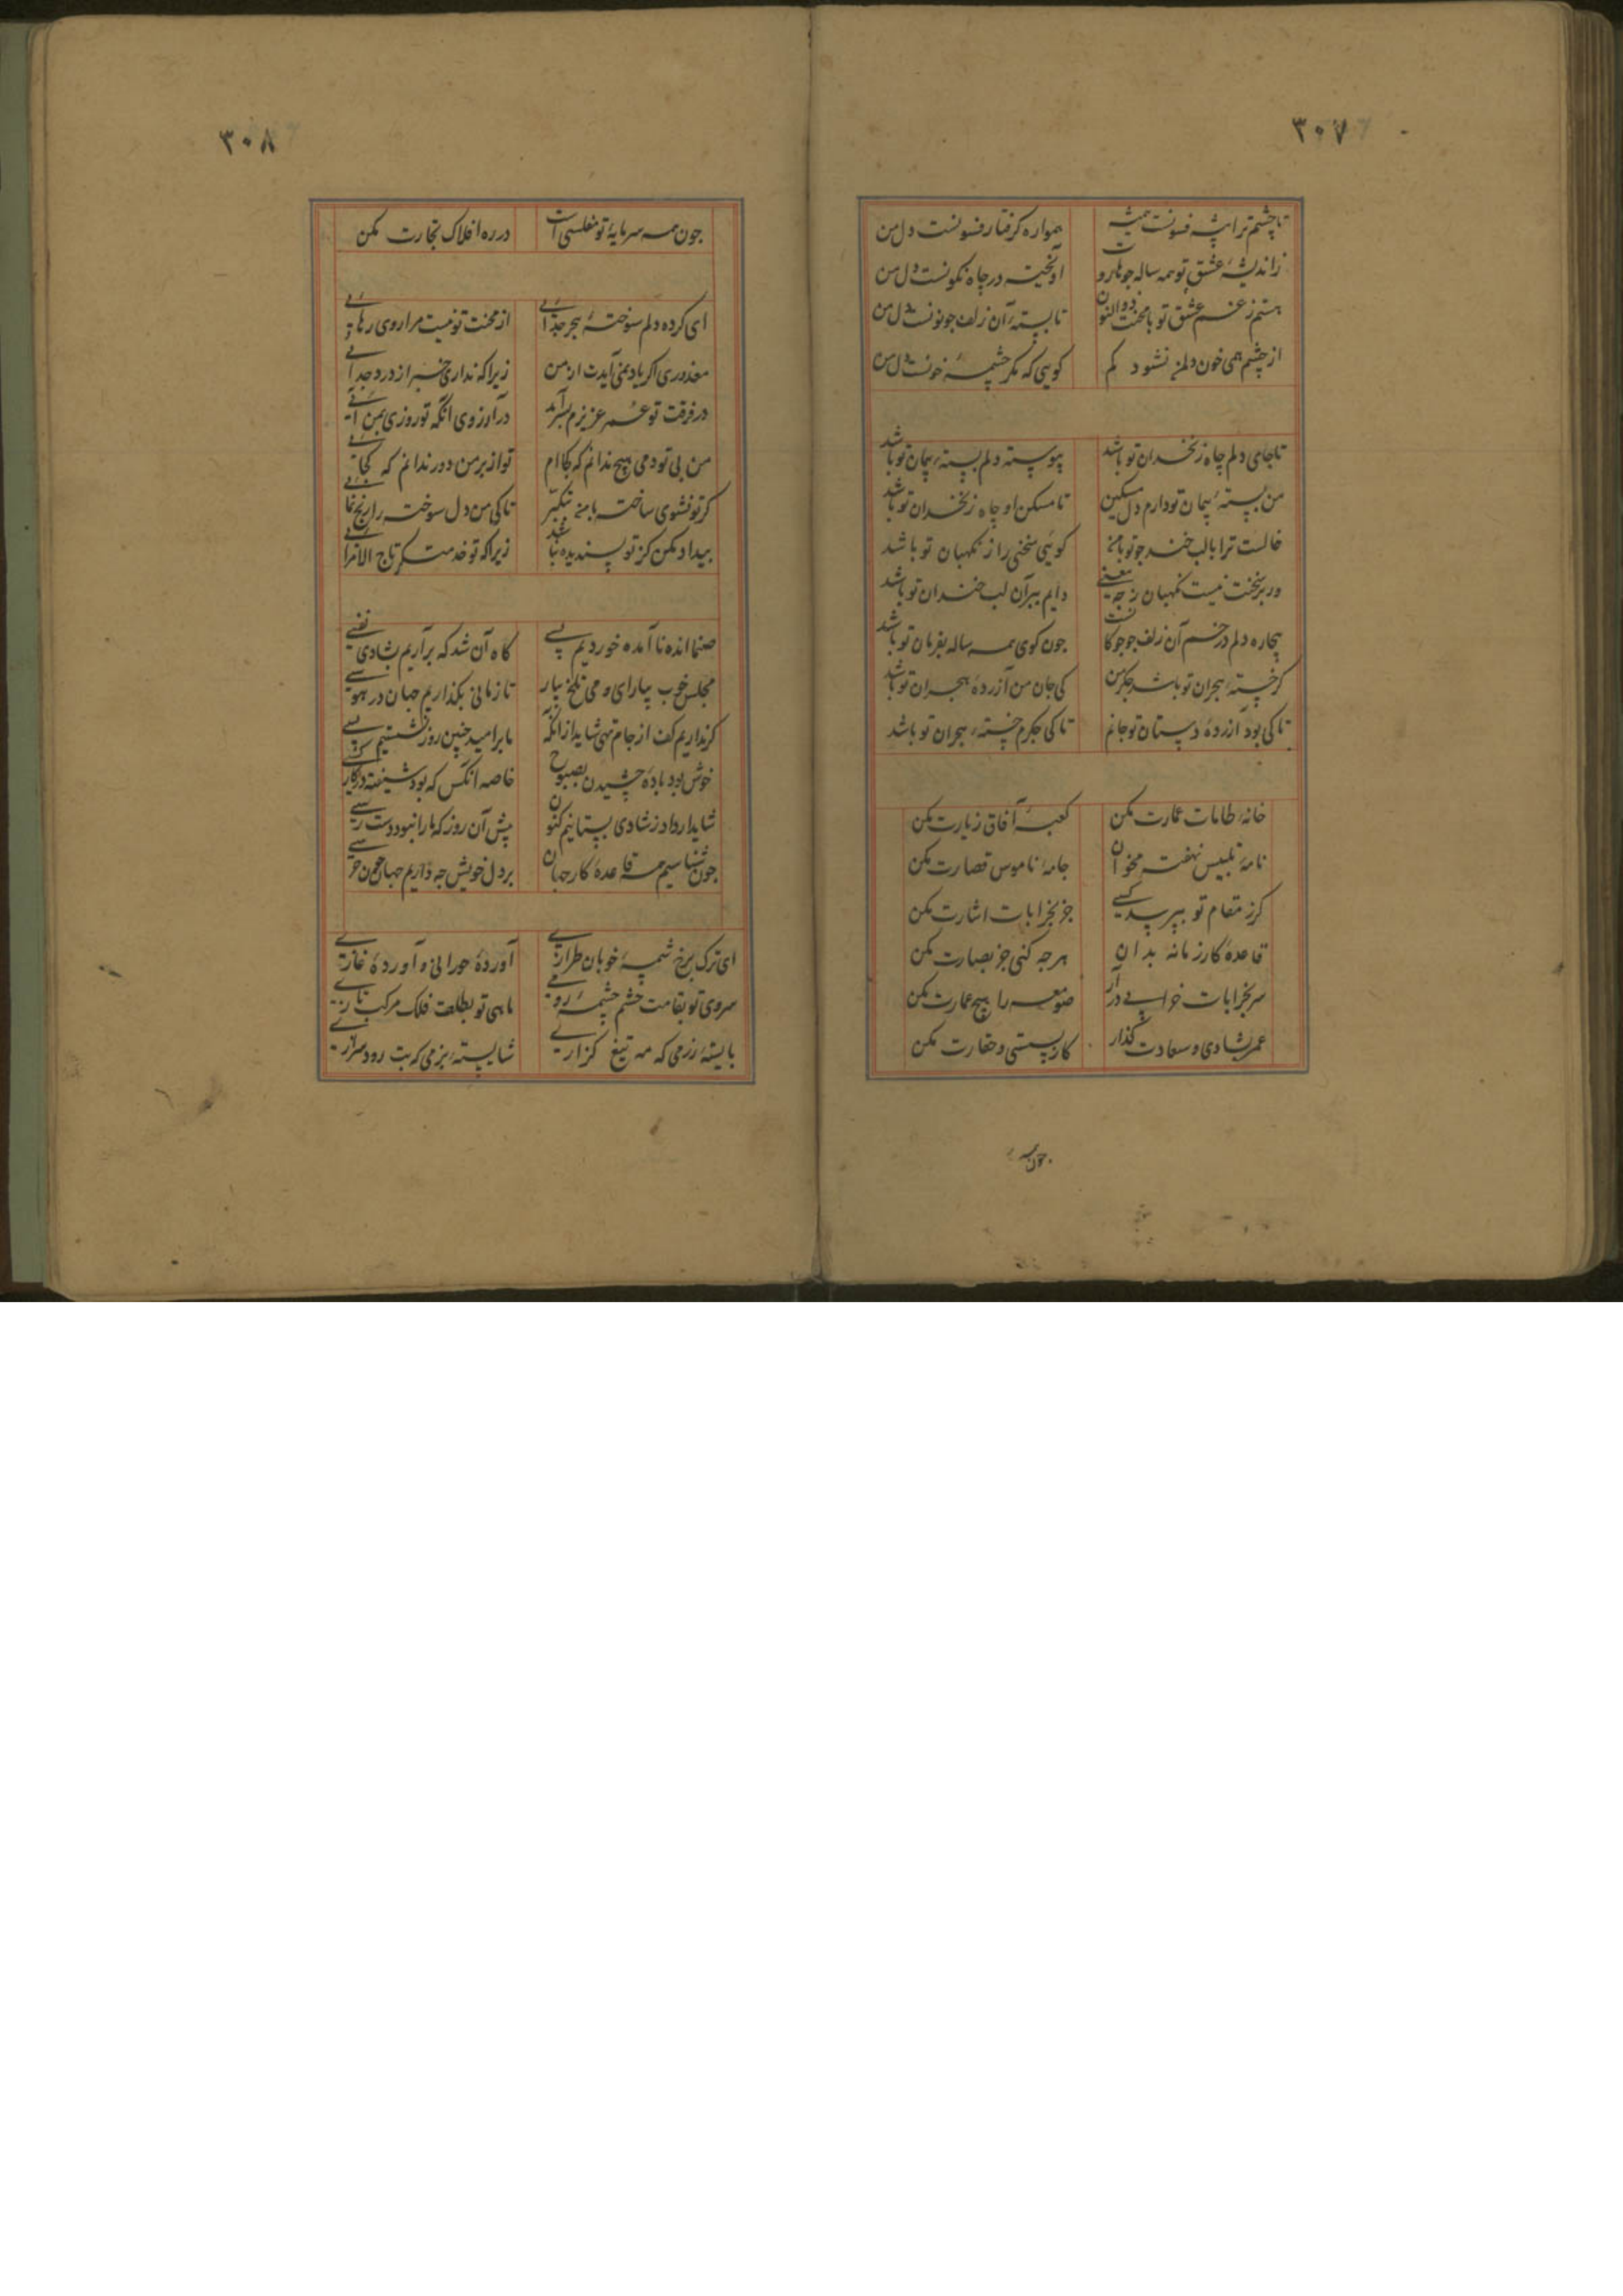 ۳۰۷
تا چشم ترا پیشه فسونست همیشه
همواره گرفتار فسونست دل من
ز اندیشهٔ عشق تو همه ساله چو هاروت
آویخته در چاه نگونست دل من
هستم ز غم عشق تو با محنت ذوالنون
تا بستهٔ آن زلف چو نونست دل من
از چشم همی خون دلم نشود کم
گویی که مگر چشمهٔ خونست دل من
تا جای دلم چاه زنخدان تو باشد
پیوسته دلم بستهٔ پیمان تو باشد
من بستهٔ پیمان تو دارم دل مسکین
تا مسکن او چاه زنخدان تو باشد
خالست ترا بالب خند جو تو بامن
کوئی سخنی راز نکهبان تو باشد
ور بر سخنت نیست نکهبان ز چه معنی
دایم ببر آن لب خندان تو باشد
بیچاره دلم در خم آن زلف چو چوکانت
جون کوی همه ساله بفرمان تو باشد
کر خستهٔ هجران تو باشد جکر من
کی جان من آزردهٔ هجران تو باشد
تا کی بود آزردهٔ دستان تو جانم
تا کی جکرم خستهٔ هجران تو باشد
خانهٔ طامات عمارت مکن
کعبهٔ آفاق زیارت مکن
نامهٔ تلبیس نهفته مخوان
جامهٔ ناموس قصارت مکن
کر ز مقام تو بپرسد کسی
جز بخرابات اشارت مکن
قاعدهٔ کار زمانه بدان
هرجه کنی جز بصارت مکن
سر بخرابات خرابی در آر
صومعه را هیچ عمارت مکن
عمر بشادی و سعادت گذار
کار بسستی و حقارت مکن
جون همه
۳۰۸
جون همه سرمایهٔ تو مفلسی است
در ره افلاک تجارت مکن
ای کرده دلم سوختهٔ هجر جدائی
از محنت تو نیست مرا روی رهائی
معذوری اکر یاد نمی آیدت از من
زیرا که نداری خبر از درد جدائی
در فرقت تو عمر عزیزم بسر آمد
در آرزوی آنکه تو روزی بمن آئی
من بی تو دمی هیچ ندانم که کجا ام
تو از بر من دور ندانم که کجائی
کر تو نشوی ساخته با من ز تکبر
تا کی من دل سوخته را رنج نمائی
بیداد مکن کز تو پسندیده نباشد
زیرا که تو خدمت کر تاج الامرائی
صنما انده نا آمده خوردیم بسی
کاه آن شد که برآریم بشادی نفسی
مجلس خوب بیارای و می تلخ بیار
تا زمانی بکذاریم جهان در هوسی
کر نداریم کف از جام تهی شاید از آنکه
ما بر امید چنین روز نشستیم بسی
خوش بود بادهٔ چشیدن بصبوح
خاصه آنکس که بود شیفته در کار کسی
شاید ار داد ز شادی بستانیم کنون
پیش آن روز که ما را نبود دست رسی
جون شناسیم همه قاعدهٔ کار جهان
بر دل خویش جه داریم جهان جون قفسی
ای ترک برخ شمسهٔ خوبان طرازی
آوردهٔ حورانی و آوردهٔ غازی
سروی تو بقامت چشم چشمهٔ رومی
ماهی تو بطلعت فلک مرکب تازی
بایستهٔ رزمی که مه تیغ گزاری
شایستهٔ بزمی که بت رود سرازی